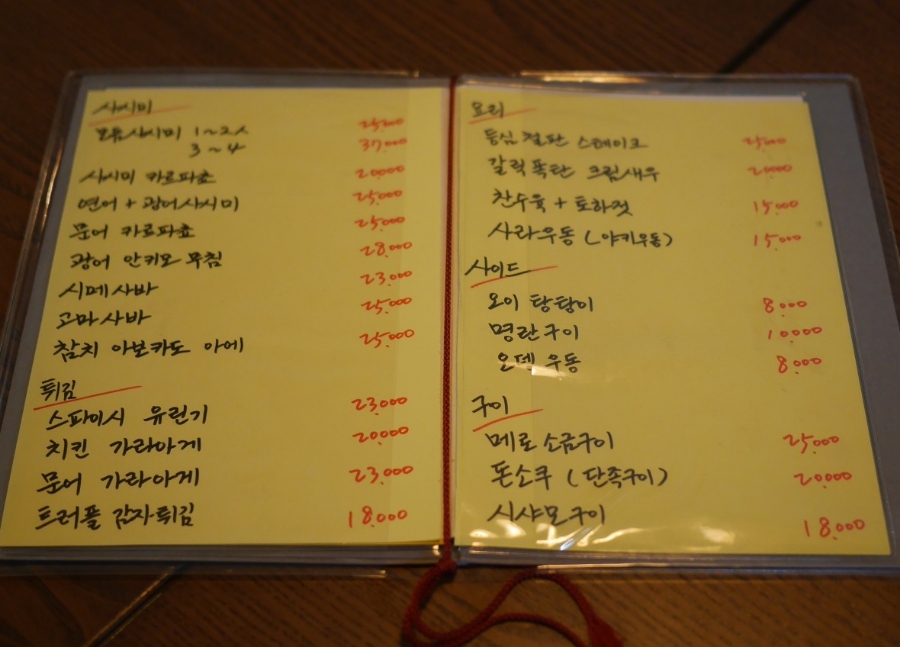 사시미
모듬사시미 1~2人 25,000
3~4 37,000
사시미 카르파쵸 20,000
연어 + 광어사시미 25,000
문어 카르파쵸 25,000
광어 안키모 무침 28,000
시메사바 23,000
고마사바 25,000
참치 아보카도 아에 25,000
튀김
스파이시 유린기 23,000
치킨 가라아게 20,000
문어 가라아게 23,000
트러플 감자튀김 18,000
요리
등심 철판 스테이크 25,000
갈릭폭탄 크림새우 20,000
찬수육 + 토하젓 15,000
사라우동 (야키우동) 15,000
사이드
오이 탕탕이 8,000
명란구이 10,000
오뎅 우동 8,000
구이
메로 소금구이 25,000
돈소쿠 (단족구이) 20,000
시샤모구이 18,000